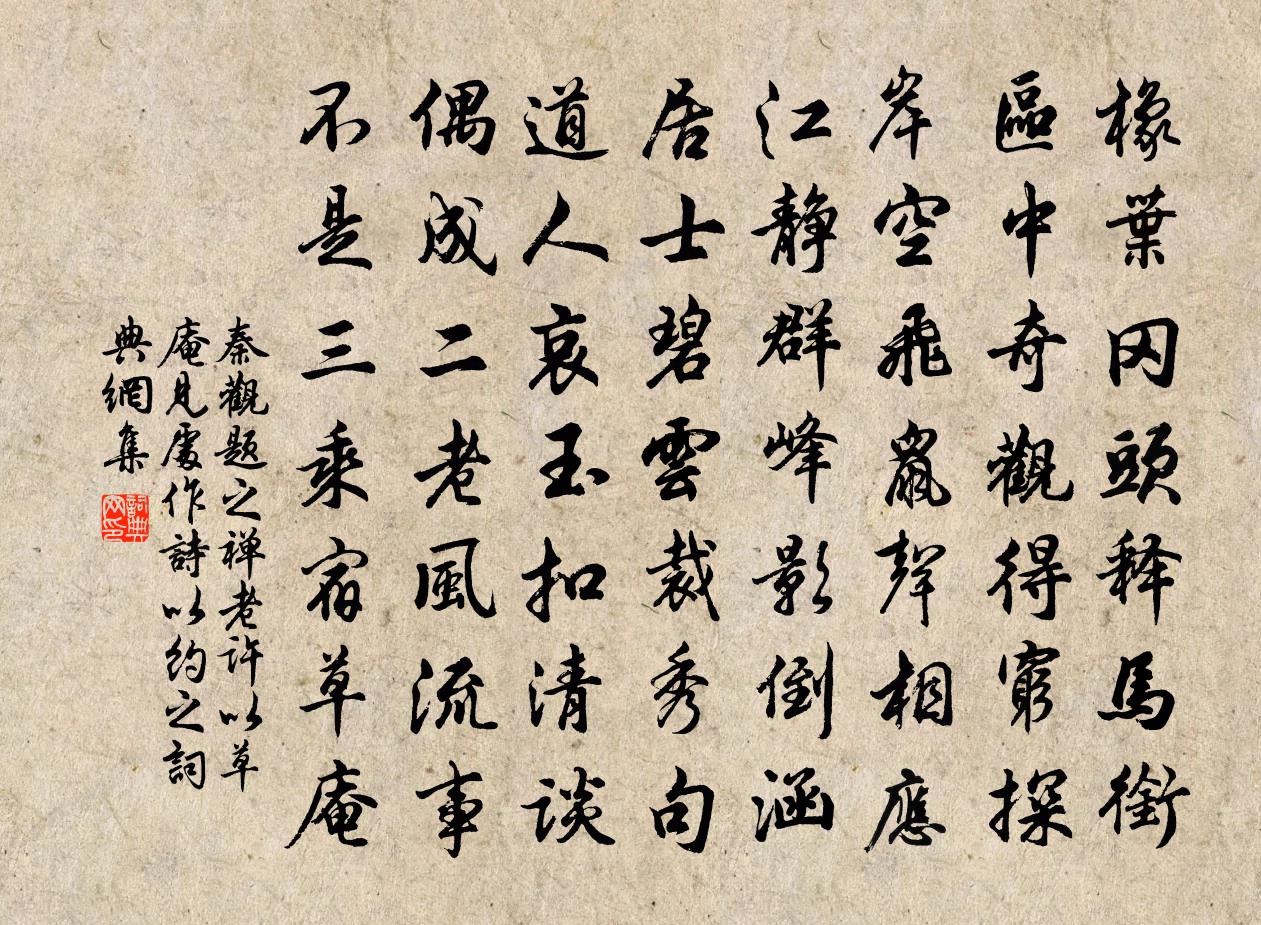 橡葉冈頭释馬銜
區中奇觀得窮探
岸空飛鼠聲相應
江静群峰影倒涵
居士碧雲裁秀句
道人哀玉扣清談
偶成二老風流事
不是三乘宿草庵
秦觀題之禅老許以草
庵見處作詩以約之詞
典網集
詞典
网印